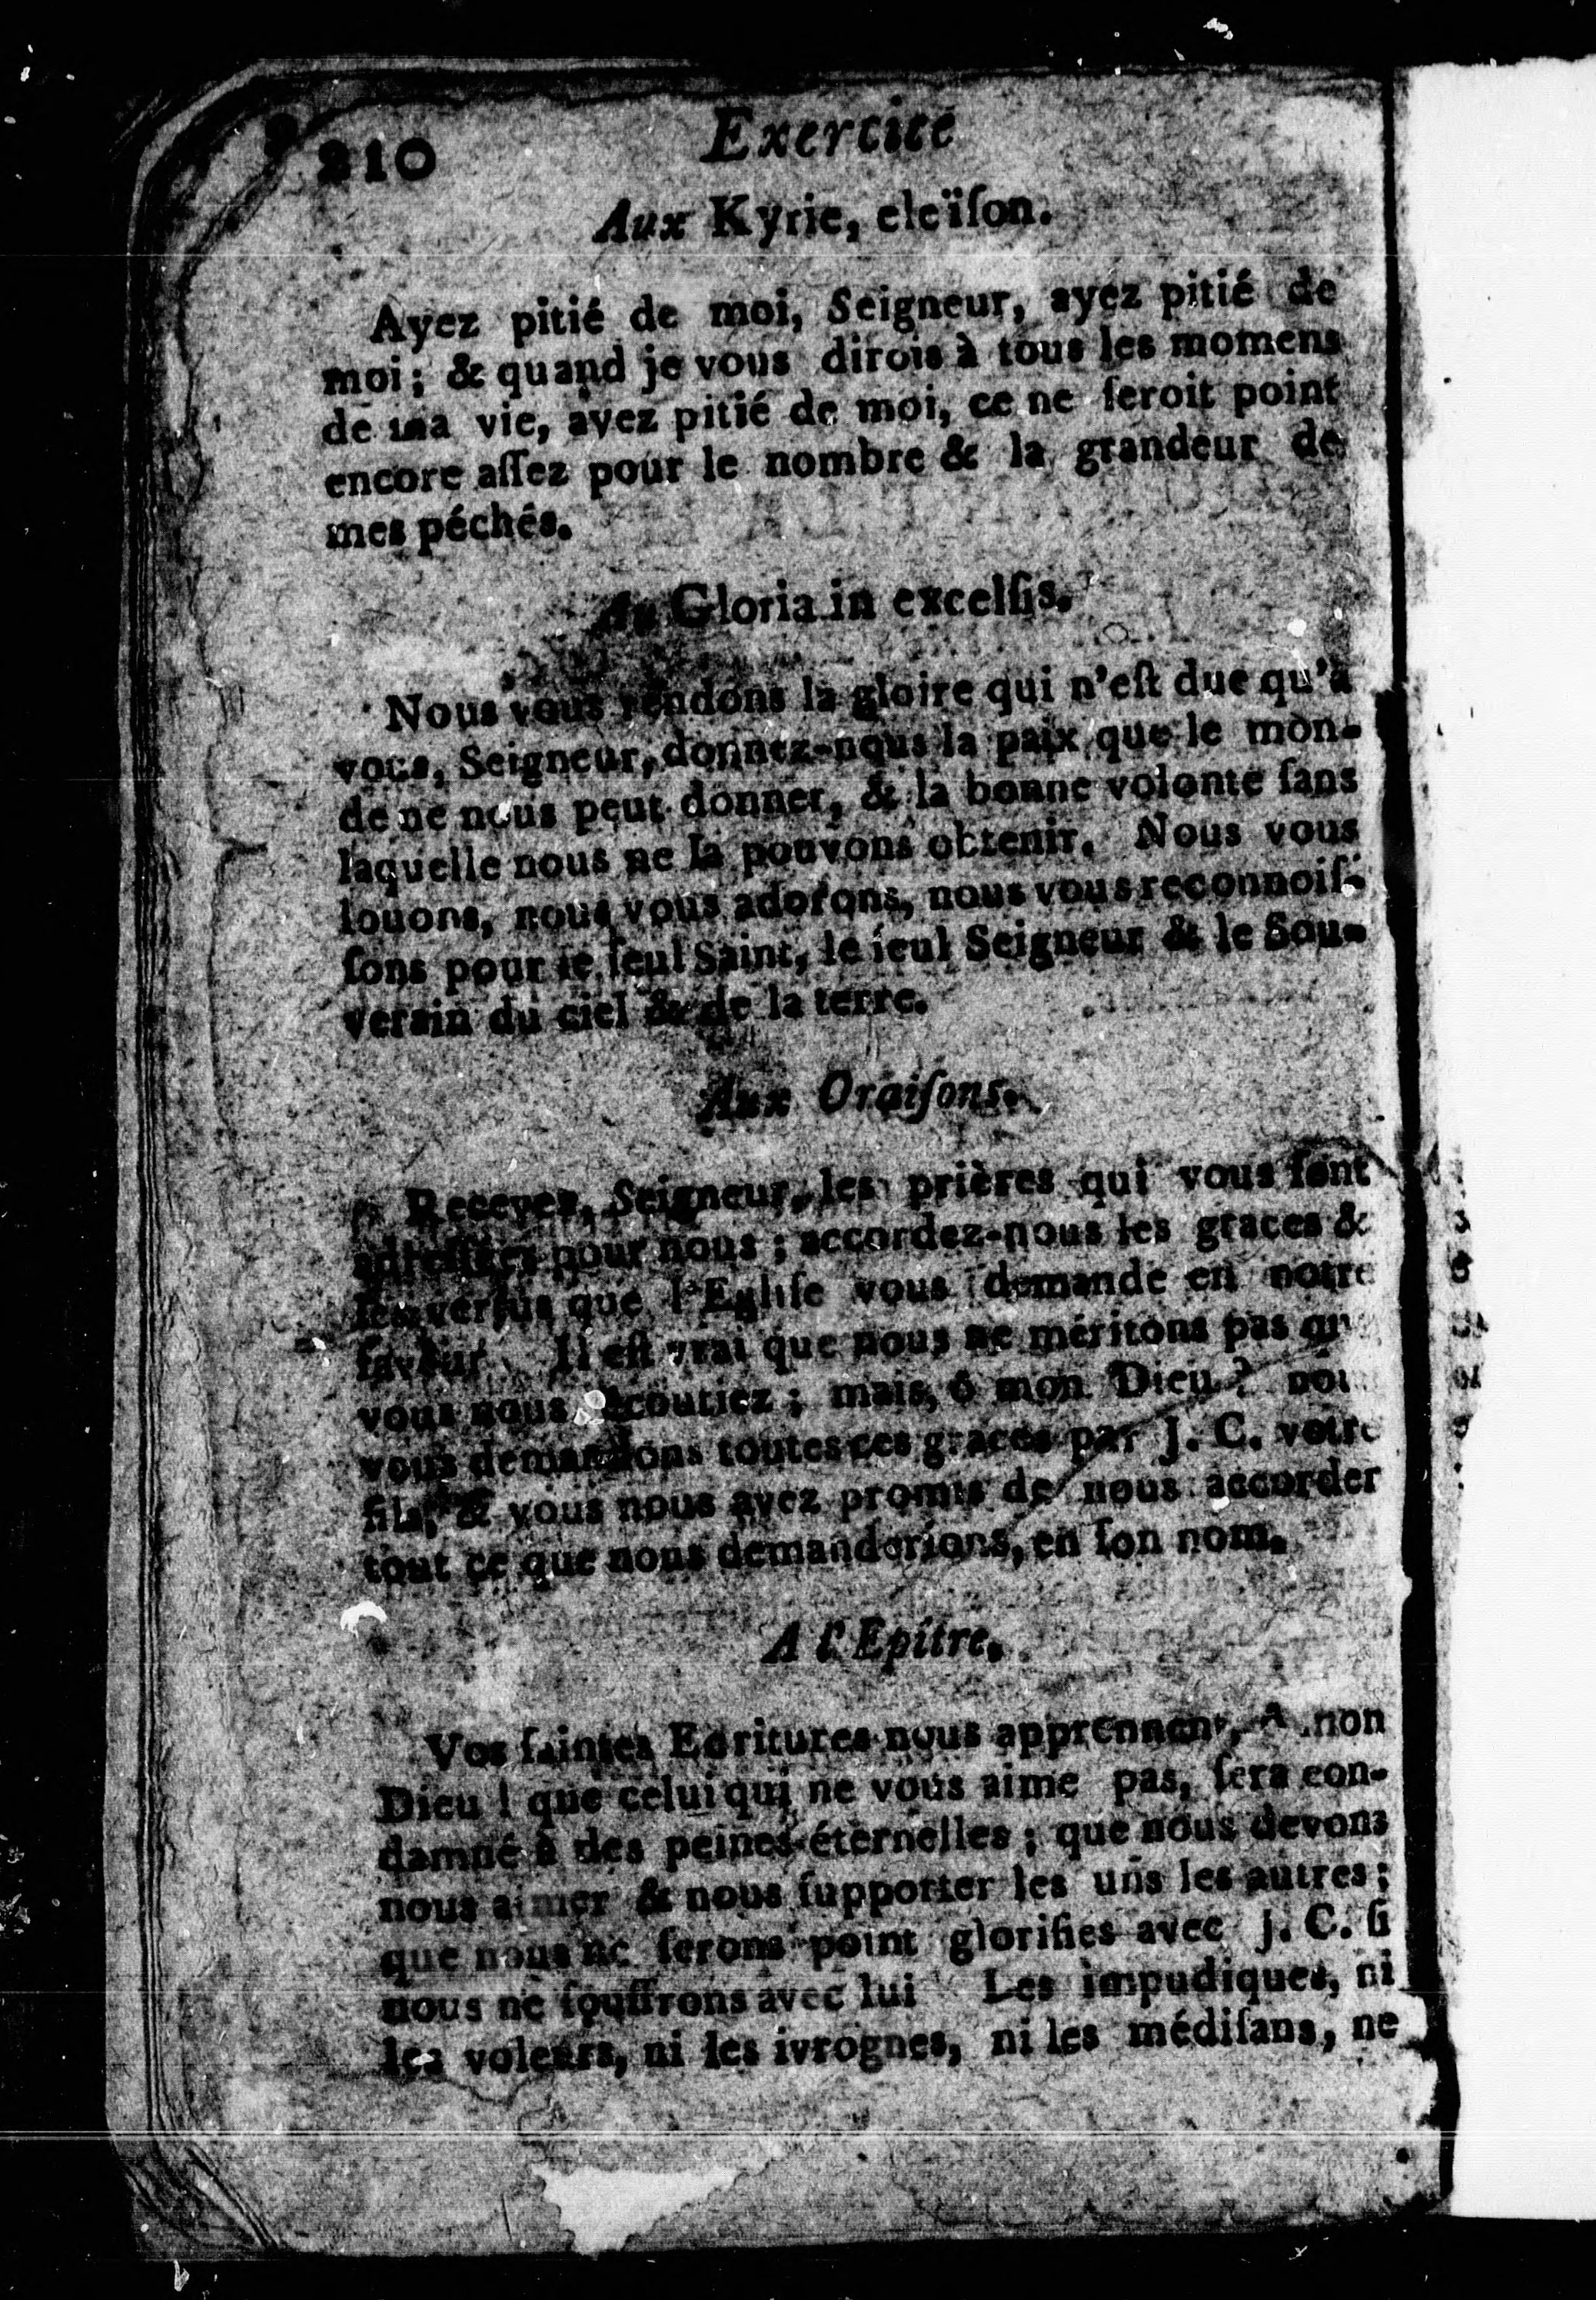 210
Exercice
Aux Kyrie, eleïſon.
Ayez pitié de moi, Seigneur, ayez pitié de
moi; & quand je vous dirois à tous les momens
de ma vie, ayez pitié de moi, ce ne ſeroit point
encore aſſez pour le nombre & la grandeur de
mes péchés.
Au Gloria in excelſis.
Nous vous rendons la gloire qui n'eſt due qu'à
vous, Seigneur, donnez-nous la paix que le mon-
de ne nous peut donner, & la bonne volonte ſans
laquelle nous ne la pouvons obtenir. Nous vous
louons, nous vous adorons, nous vous reconnoiſ-
ſons pour le ſeul Saint, le ſeul Seigneur & le Sou-
verain du ciel & de la terre.
Aux Oraiſons.
Recevez, Seigneur, les prières qui vous ſont
adreſſées pour nous; accordez-nous les graces &
les vertus que l'Egliſe vous demande en notre
faveur. Il eſt vrai que nous ne méritons pas que
vous nous écoutiez; mais, ô mon Dieu? nou
vous demandons toutes ces graces par J. C. votre
fils, & vous nous avez promis de nous accorder
tout ce que nous demanderions, en ſon nom.
A l'Epître.
Vos ſaintes Ecritures nous apprennent, mon
Dieu! que celui qui ne vous aime pas, ſera con-
damné à des peines éternelles; que nous devons
nous aimer & nous ſupporter les uns les autres;
que nous ne ſerons point glorifies avec J. C. ſi
nous ne ſouffrons avec lui Les impudiques, ni
les voleurs, ni les ivrognes, ni les médiſans, ne